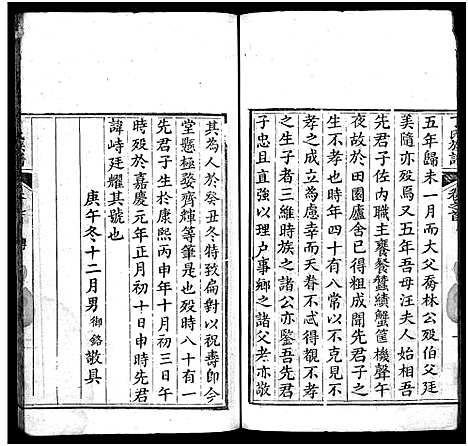 五年歸未一月而大父喬林公殁伯父廷
美隨亦殁焉又五年吾母汪夫人始與吾
先君子佐内職主饔餐蠶績蟹筐機聲午
夜故於田園廬舍已得粗成聞先君子之
孝不孝也時年四十有八常以不克見不
孝之成立為慮幸而天眷不孝得覩不孝
之生子者三維時族之諸公亦鑒吾先君
子忠且直以理户事鄉之諸父老亦敬
其為於癸丑冬特致扁對以祝壽即今
堂懸極婺齊輝等筆是也殁時八十有一
先君子生於康熙丙申年十月初三日午
時殁於嘉慶元年正月初十日申時先君
諱峙廷耀其號也
庚午冬十二月男御銘敬具
氏族譜